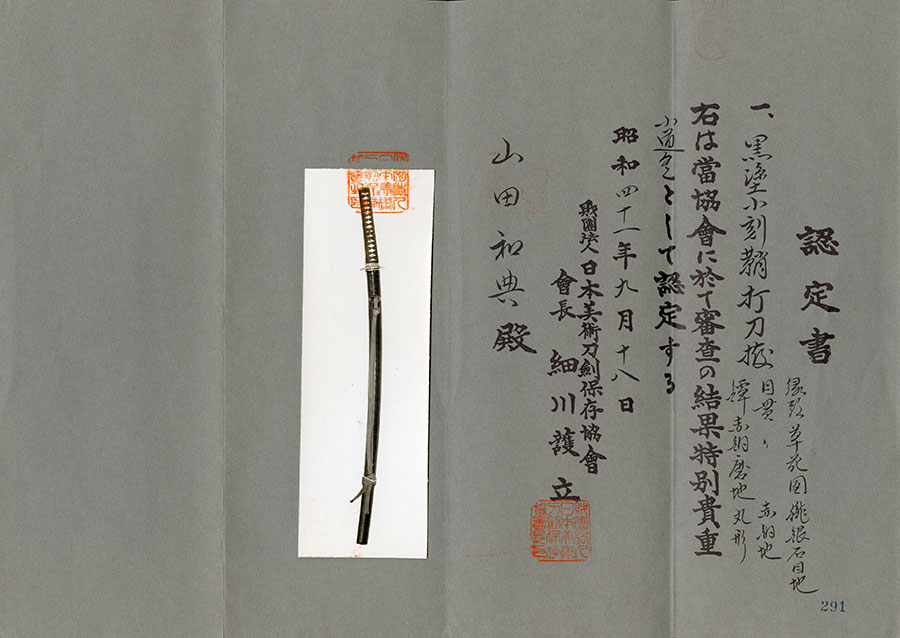 認定書
一、黒塗小刻鞘打刀拵
縁頭草花図朧銀石目地
目貫〃 赤銅地
鐔赤銅磨地丸形
右は當協會に於て審査の結果特別貴重
小道具として認定する
昭和四十一年九月十八日
財團法人日本美術刀劍保存協會
會長 細川護立
山田和典殿
291